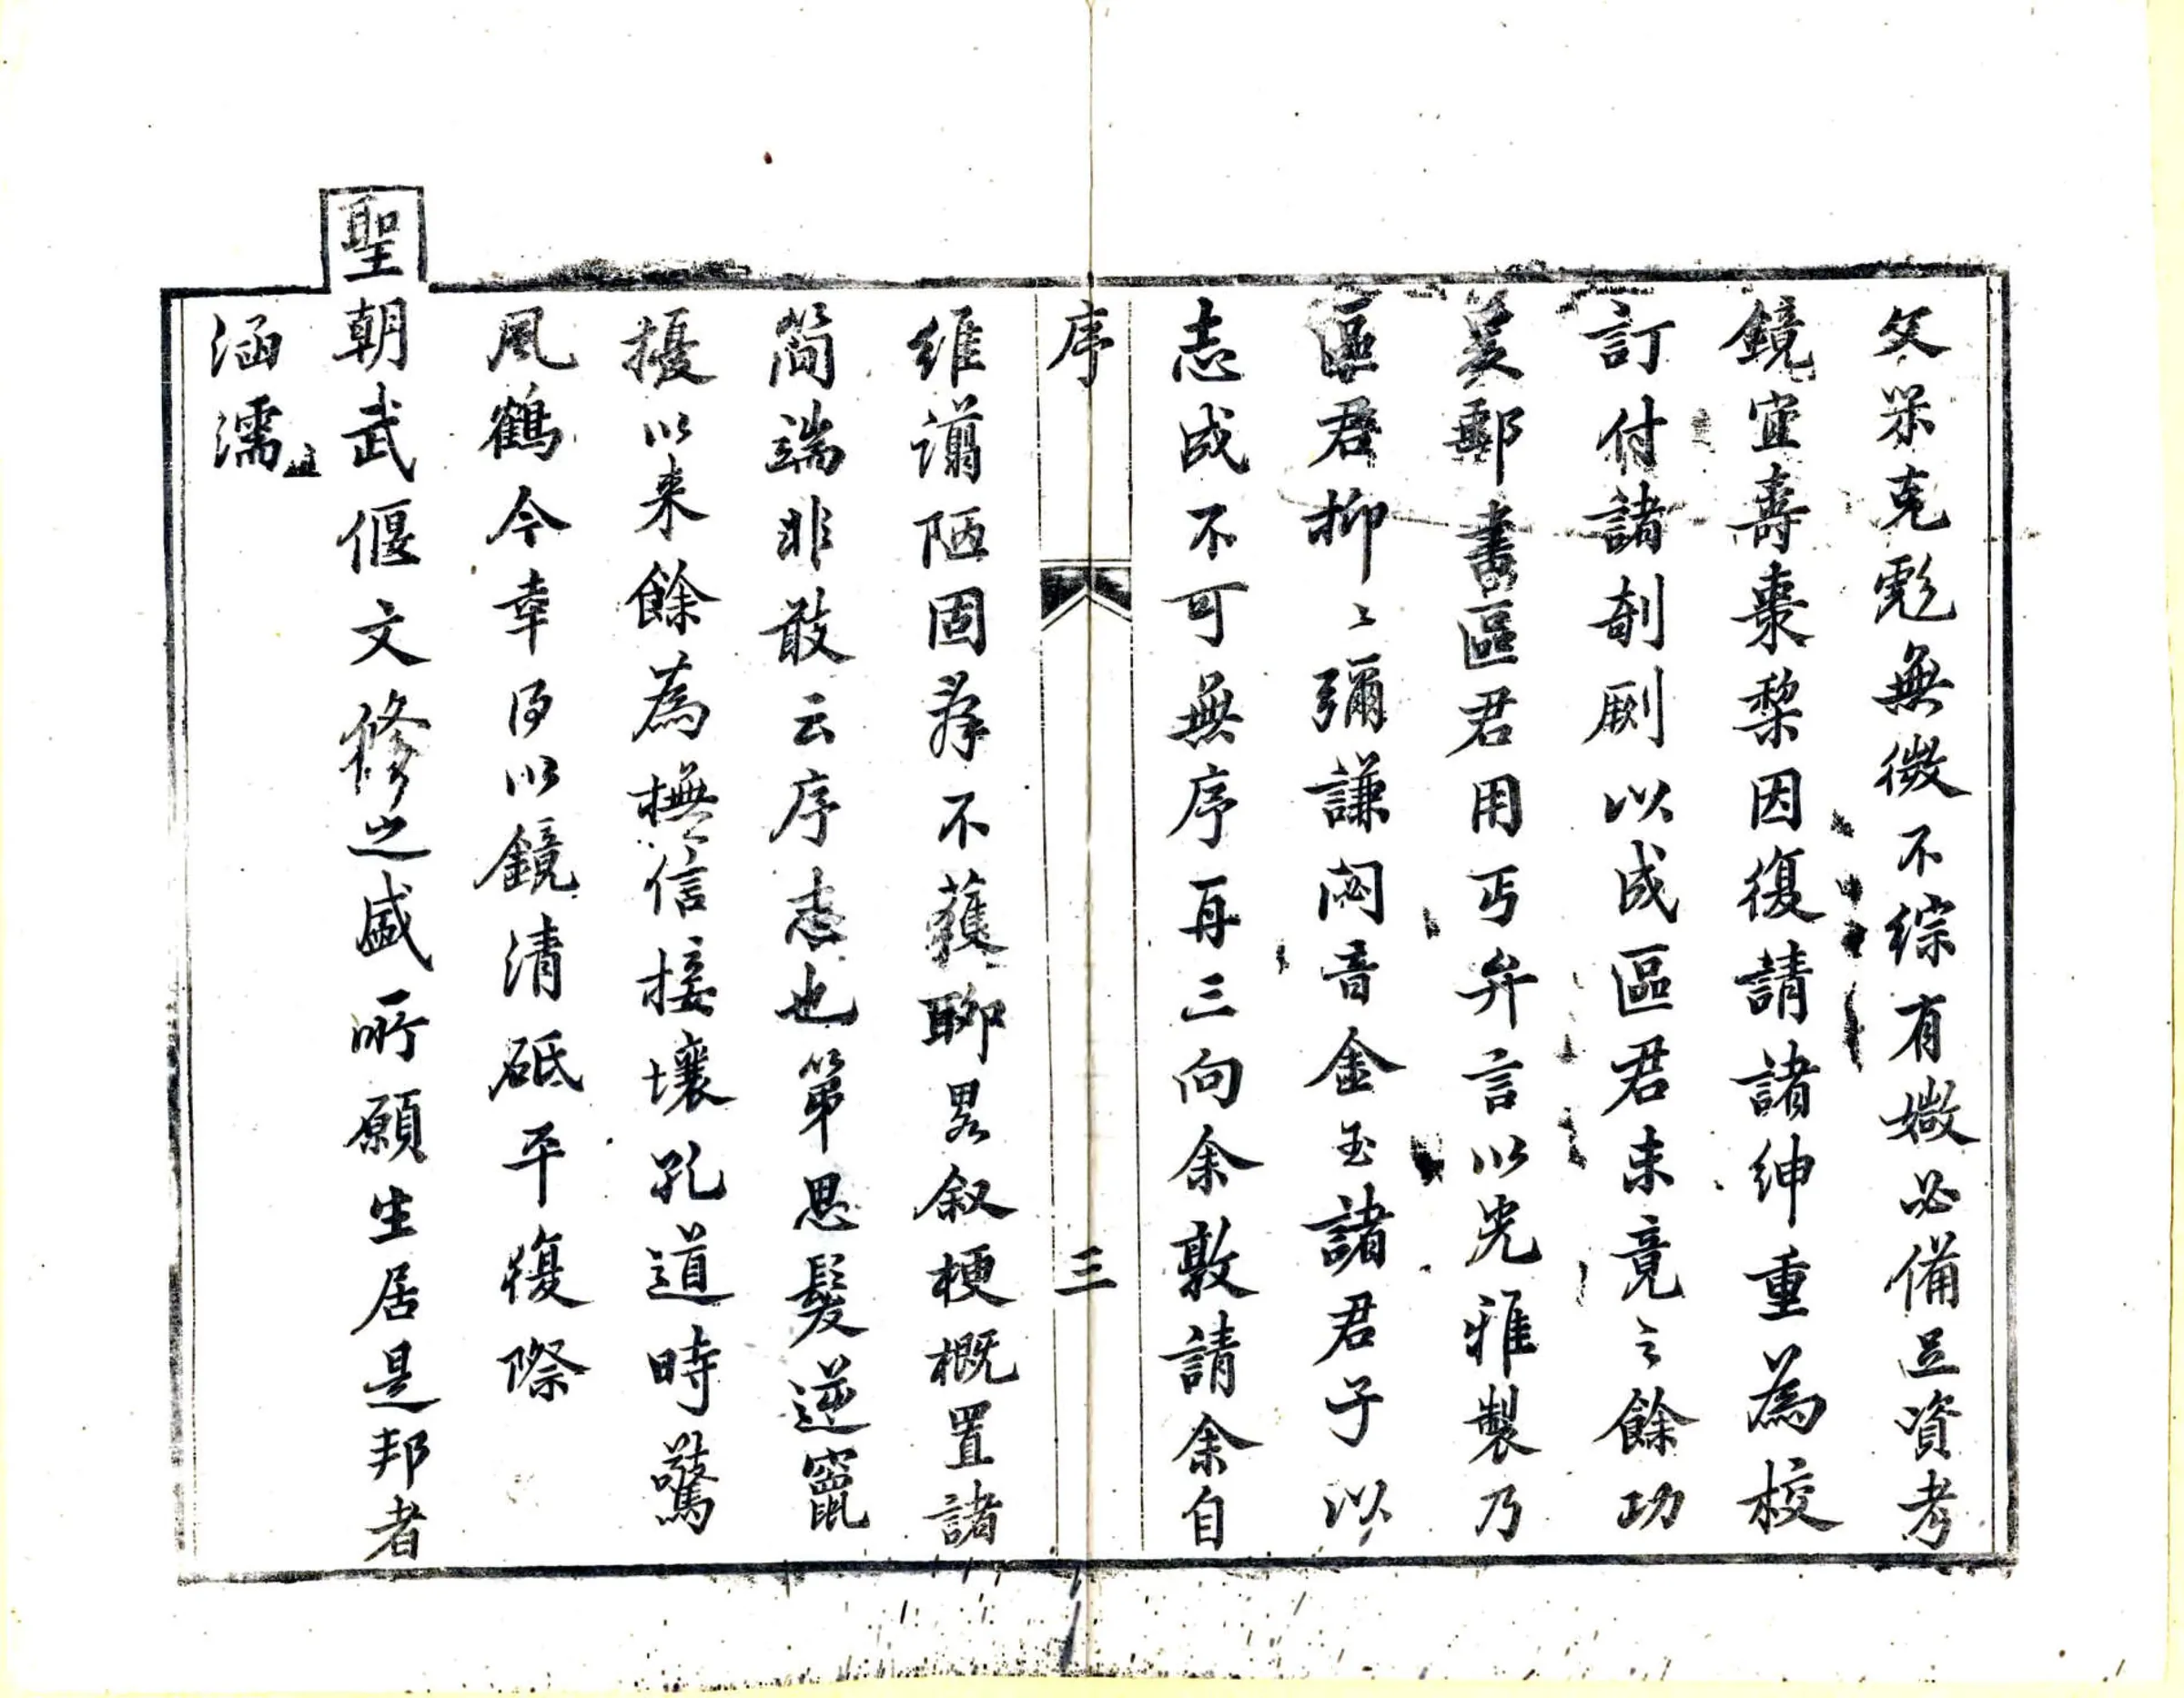 文罙克彪無微不綜有媺必備足資考
鏡宜壽棗棃因復請諸紳重為校
訂付諸剞劂以成區君未竟之餘功
爰郵書區君用丐弁言以光雅製乃
區君抑〻彌謙閟音金玉諸君子以
志成不可無序再三向余敦請余自
序
三
維譾陋固辞不獲聊畧叙梗概置諸
简端非敢云序志也第思髮逆竄
擾以来餘為撫信接壤孔道時驚
風鶴今幸得以鏡清砥平復際
聖朝武偃文修之盛所願生居是邦者
涵濡